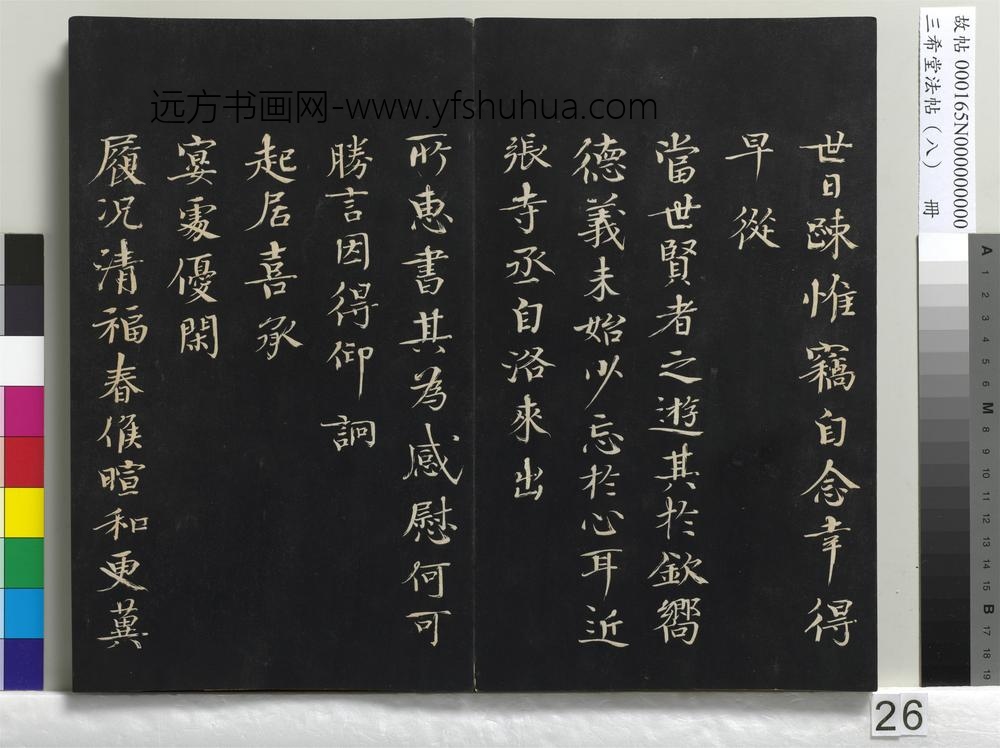 世日踈惟竊自念幸得
早從
當世賢者之遊其於欽嚮
德義未始少忘於心耳近
張寺丞自洛來出
所惠書其為感慰何可
勝言因得仰詗
起居喜承
宴處優閑
履况清福春候暄和更冀
远方书画网-www.yfshuhua.com
故帖 000165N000000000
三希堂法帖（八） 冊
26
A 1 2 3 4 5 6 M 8 9 10 11 12 13 14 15 B 17 18 19